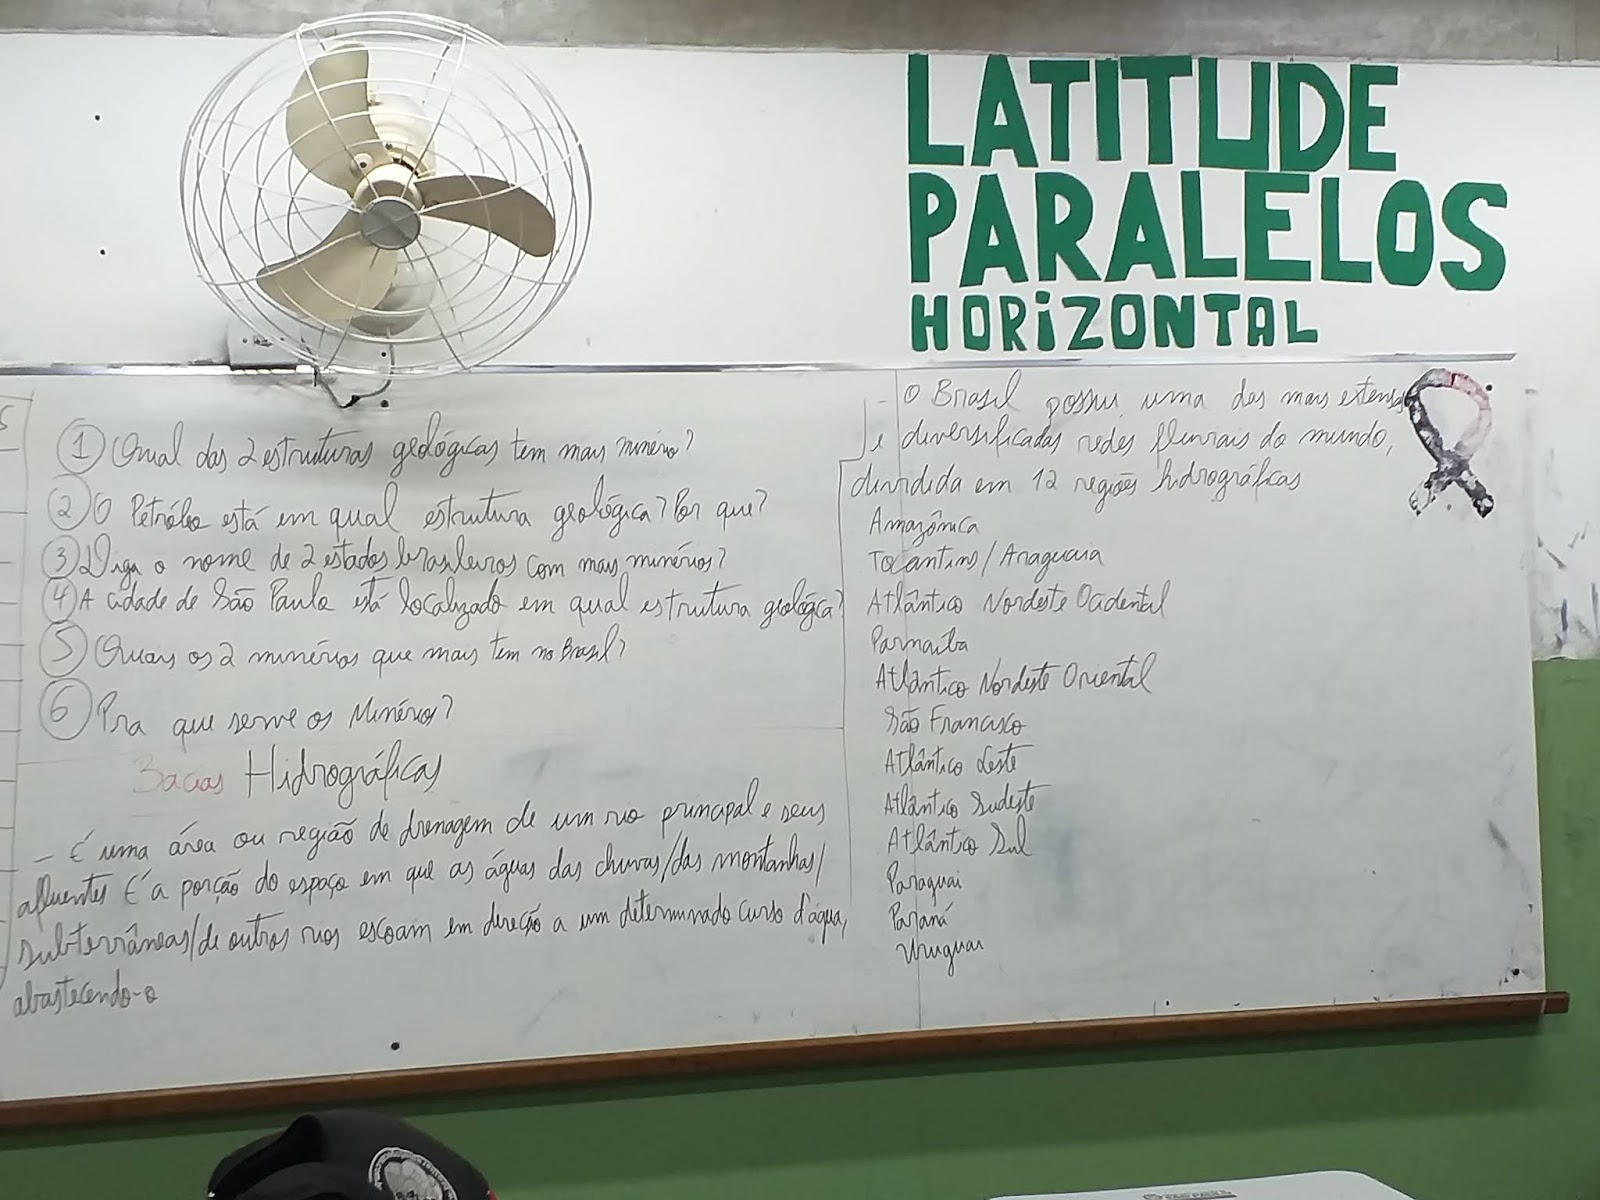 LATITUDE
PARALELOS
HORIZONTAL
1 Qual das 2 estruturas geológicas tem mais minério?
2 O Petróleo está em qual estrutura geológica? Por que?
3 Diga o nome de 2 estados brasileiros com mais minérios?
4 A cidade de São Paulo está localizado em qual estrutura geológica?
5 Quais os 2 minérios que mais tem no Brasil?
6 Pra que serve os Minérios?
Bacias Hidrográficas
- É uma área ou região de drenagem de um rio principal e seus
afluentes É a porção do espaço em que as águas das chuvas/das montanhas/
subterrâneas/de outros rios escoam em direção a um determinado curso d'água,
abastecendo-o
- O Brasil possui uma das mais extensas
e diversificadas redes fluviais do mundo,
dividida em 12 regiões hidrográficas
Amazônica
Tocantins/Araguaia
Atlântico Nordeste Ocidental
Parnaíba
Atlântico Nordeste Oriental
São Francisco
Atlântico Leste
Atlântico Sudeste
Atlântico Sul
Paraguai
Paraná
Uruguai